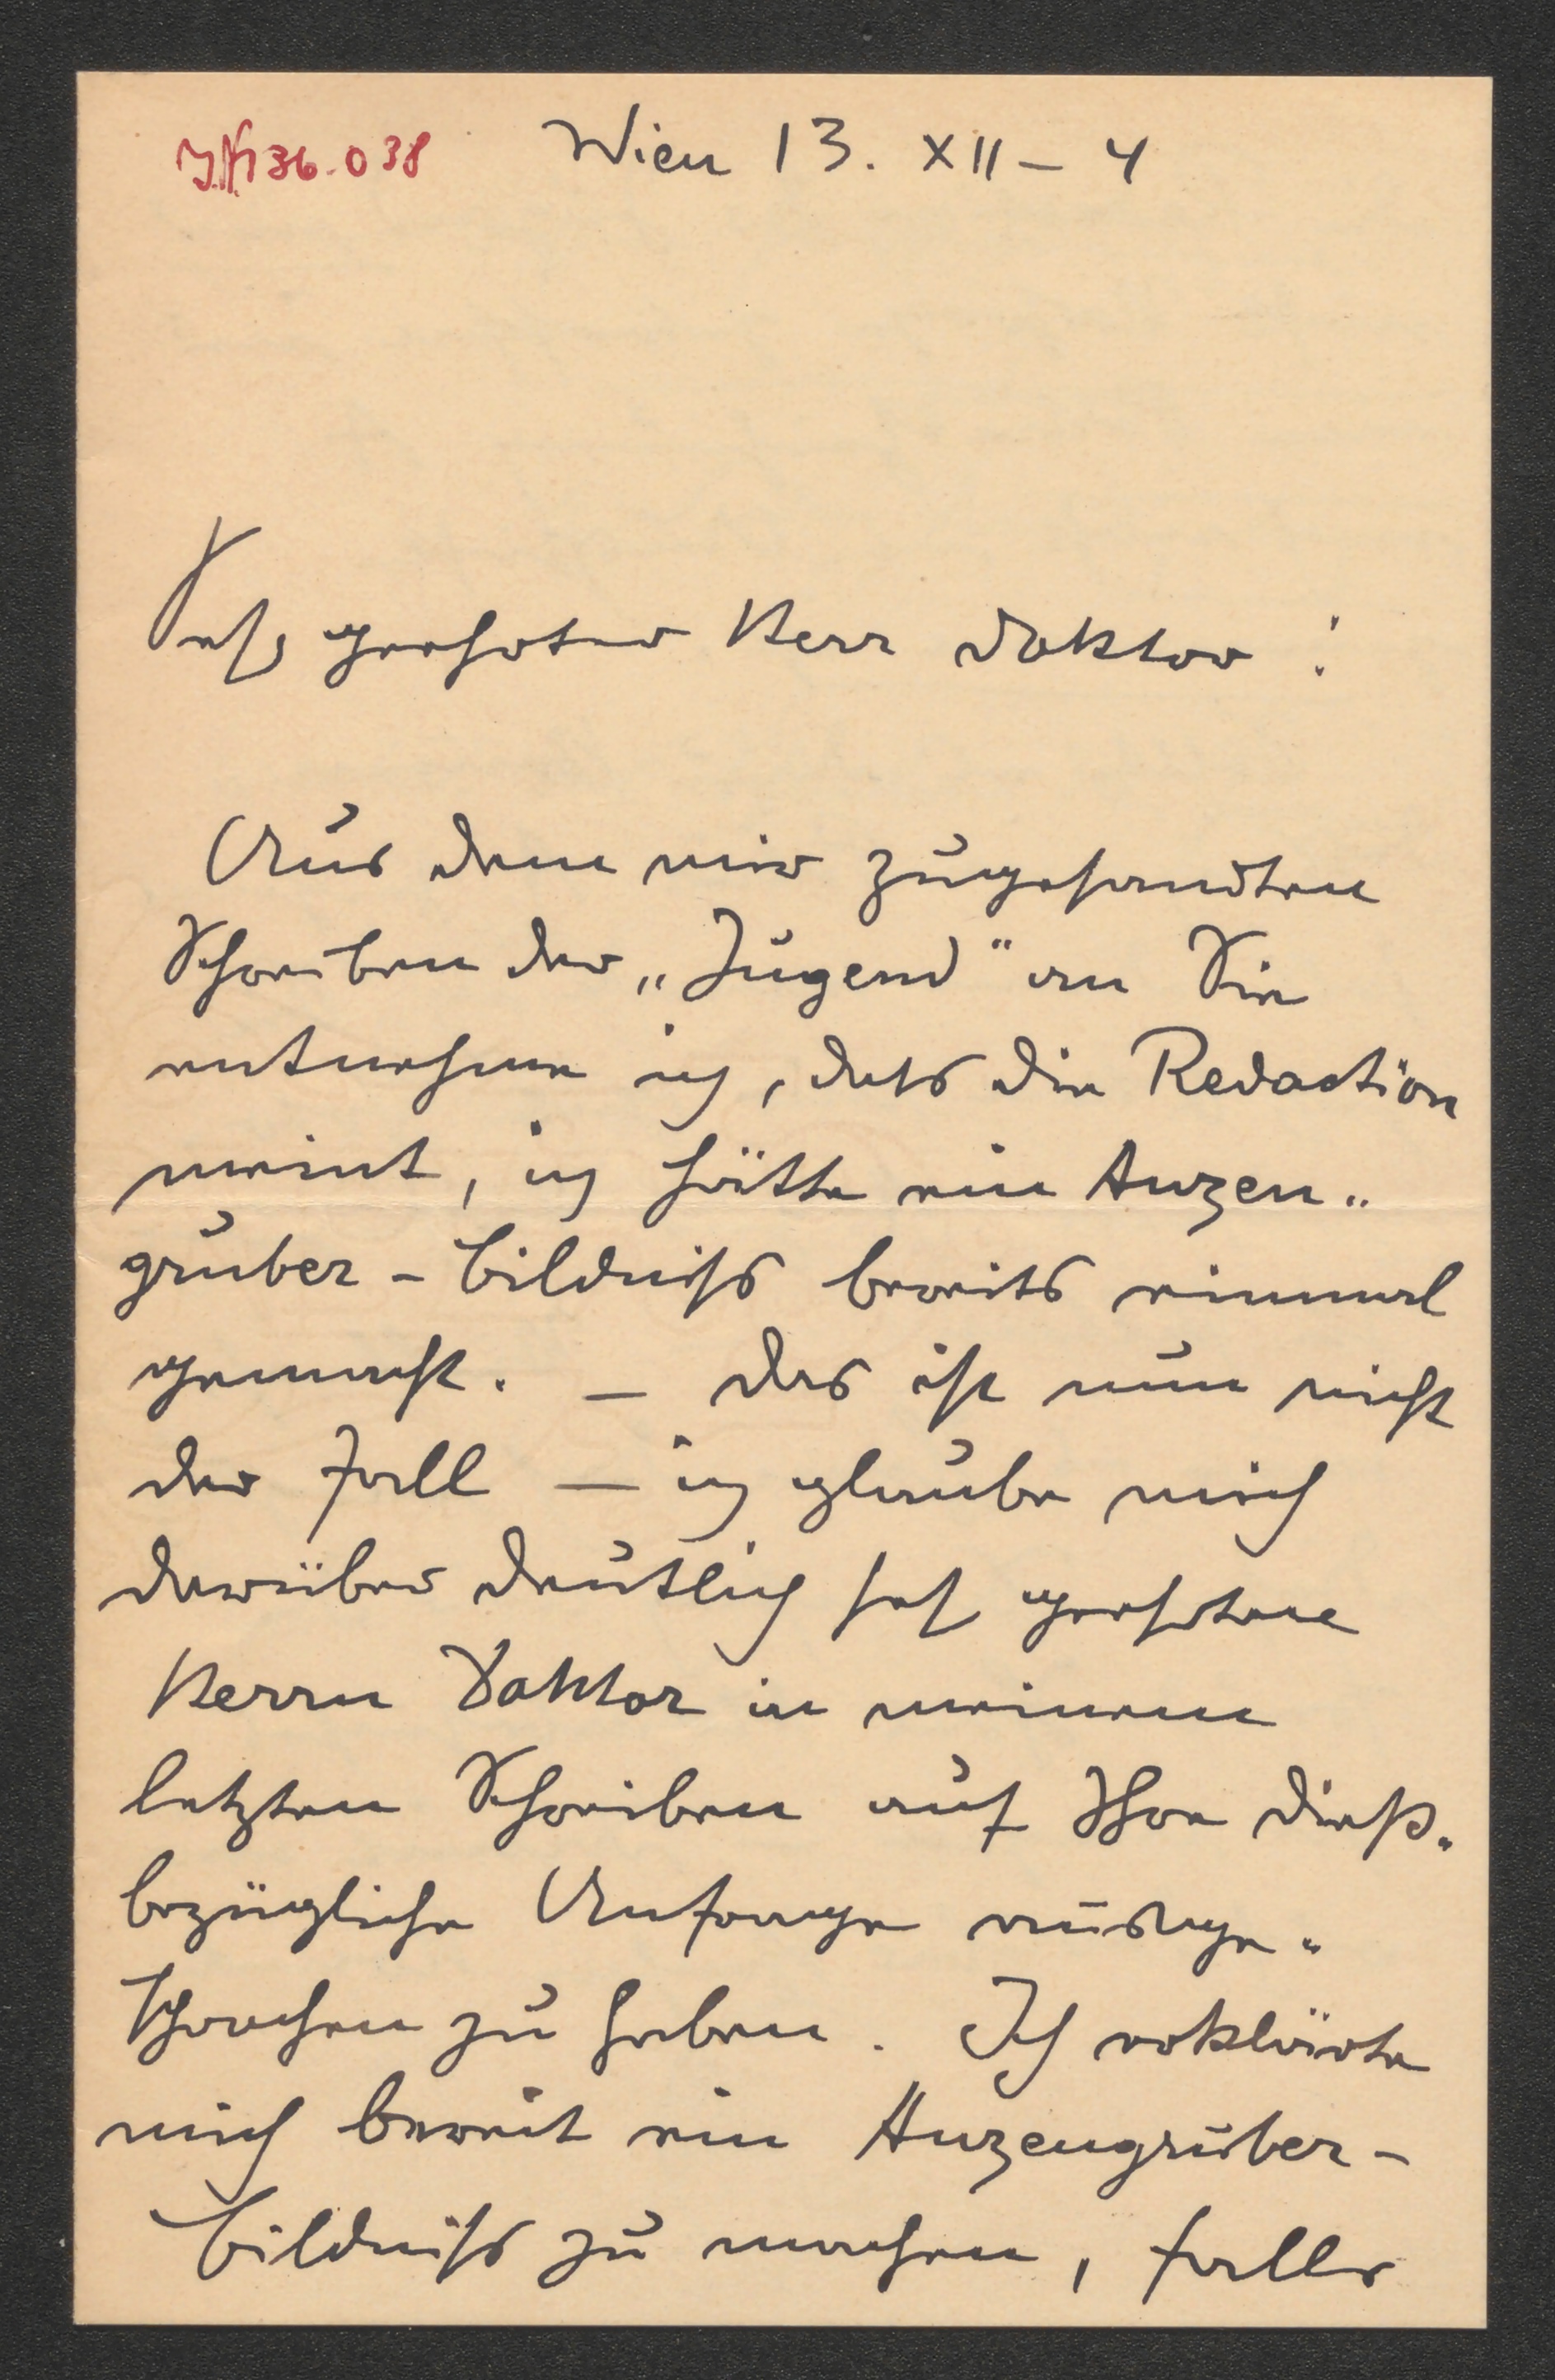 J.N. 136.038 Wien 13. XII – 4
Sehr geehrter Herr Doktor!
Aus dem mir zugesandten
Schreiben der „Jugend" an Sie
entnehme ich, dass die Redaction
meint, ich hätte ein Anzen-
gruber – Bildniss bereits einmal
gemacht. – Das ist nun nicht
der Fall – ich glaube mich
darüber deutlich sehr geehrter
Herrn Doktor in meinem
letzten Schreiben auf Ihre dieß-
bezügliche Anfrage ausge-
sprochen zu haben. Ich erklärte
mich bereit ein Anzengruber –
bildniss zu machen, falls